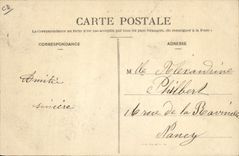 CB
CARTE POSTALE
La Correspondance au recto n'est pas acceptée par tous les pays étrangers. (Se renseigner à la Poste)
CORRESPONDANCE
ADRESSE
Amitié
sincère
Mlle Alexandrine
Philbert
16 rue de la Ravinelle
Nancy